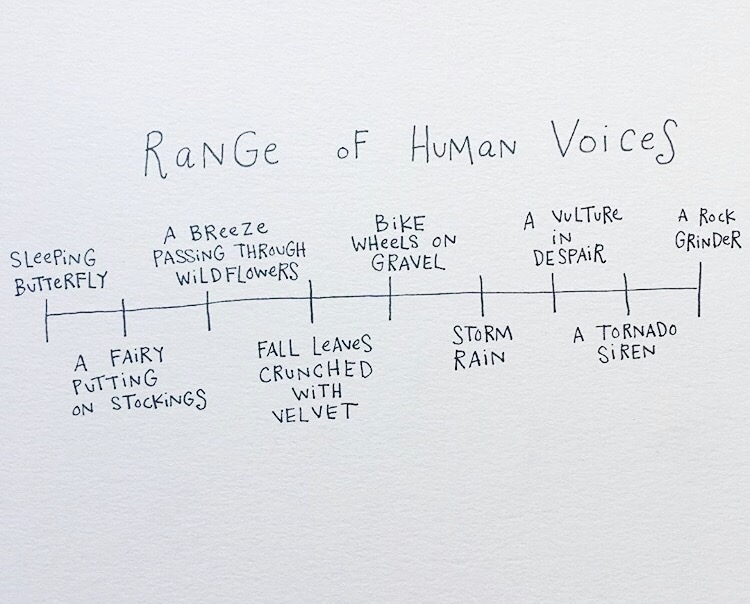 RaNGe oF HuMaN VoiceS
SLeePiNG
BuTTeRFLY
A FAiRY
PuTTiNG
oN SToCKiNGS
A BReeZe
PASSiNG THRouGH
WiLDFLoWeRS
FALL LeAVeS
CRuNCHED
WiTH
VELVET
BiKE
WHeeLS oN
GRAVEL
SToRM
RAiN
A VuLTuRe
iN
DESPAiR
A ToRNADo
SiREN
A RocK
GRiNDeR